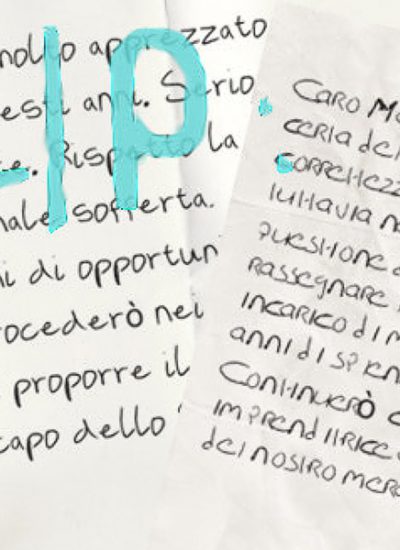 molto apprezzato
esti anni. Serio
e. Rispetto la
nale sofferta.
ni di opportun
rocederò nei
proporre il
capo dello
IP
CARO M
CERTA DEL
CORRETTEZZ
TUTTAVIA N
QUESTIONE
RASSEGNARE
INCARICO DI M
ANNI DI SPLEN
CONTINUERÒ
IMPRENDITRICE
DEL NOSTRO MERC